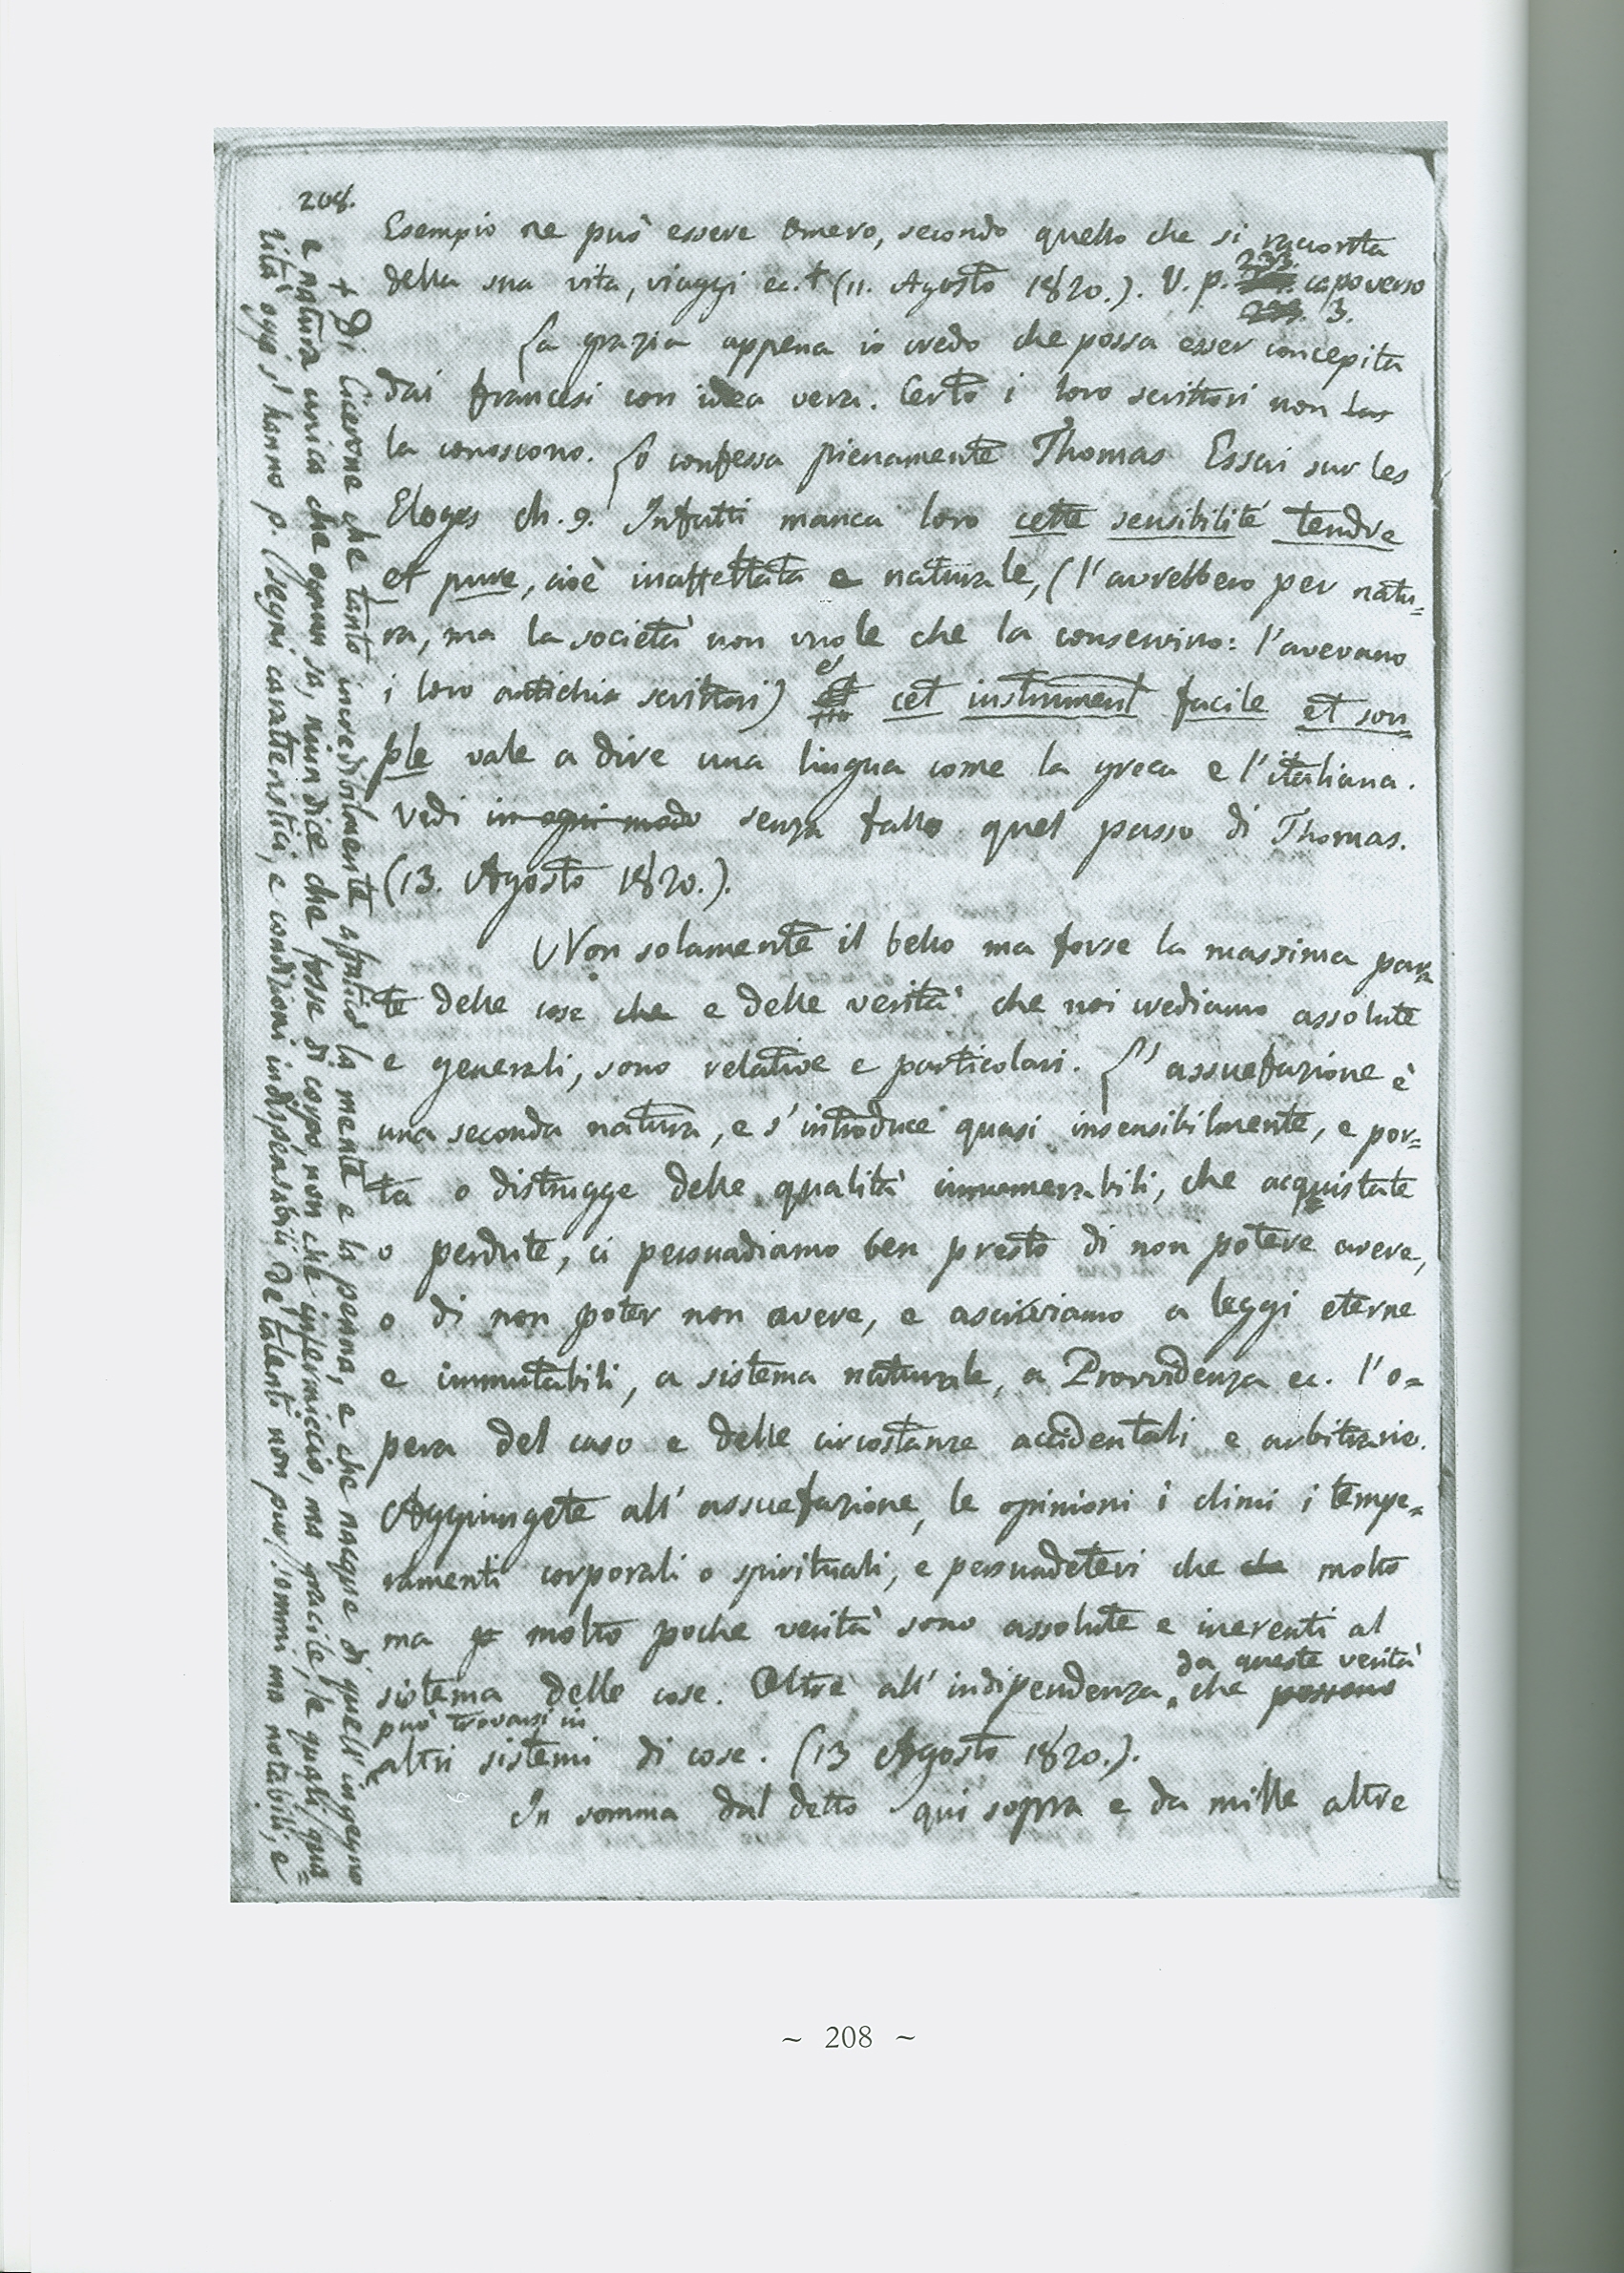 208.
Esempio ne può essere Omero, secondo quello che si racconta
della sua vita, viaggi ec.+ (11. Agosto 1820.). V. p. 233. capoverso
3.
La grazia appena io credo che possa esser concepita
dai francesi con idea vera. Certo i loro scrittori non
la conoscono. Lo confessa pienamente Thomas Essai sur les
Eloges ch. 9. Infatti manca loro cette sensibilité tendre
et pure, cioè inaffettata e naturale, (l'avrebbero per natu=
ra, ma la società non vuole che la conservino: l'avevano
i loro antichi scrittori) e cet instrument facile et sou=
ple vale a dire una lingua come la greca e l'italiana.
Vedi in ogni modo senza fallo quel passo di Thomas.
(13. Agosto 1820.).
Non solamente il bello ma forse la massima par=
te delle cose che e delle verità che noi crediamo assolute
e generali, sono relative e particolari. L'assuefazione è
una seconda natura, e s'introduce quasi insensibilmente, e por=
ta o distrugge delle qualità innumerabili, che acquistate
o perdute, ci persuadiamo ben presto di non potere avere,
o di non poter non avere, e ascriviamo a leggi eterne
e immutabili, a sistema naturale, a Provvidenza ec. l'o=
pera del caso e delle circostanze accidentali e arbitrarie.
Aggiungete all'assuefazione, le opinioni i climi i tempe=
ramenti corporali o spirituali, e persuadetevi che che molto
ma p molto poche verità sono assolute e inerenti al
sistema delle cose. Oltre all'indipendenza da queste verità che possono
può trovarsi in
altri sistemi di cose. (13 Agosto 1820.).
In somma dal detto qui sopra e da mille altre
+ Di Cicerone che tanto incredibilmente affaticò la mente e la penna, e che nacque di quell'ingegno
e natura unica che ognun sa, niun dice che fosse di corpo, non che infermiccio, ma gracile, le quali qua=
lità oggi s'hanno p. segni caratteristici, e condizioni indispensabili de' talenti non pur sommi ma notabili, e
~ 208 ~